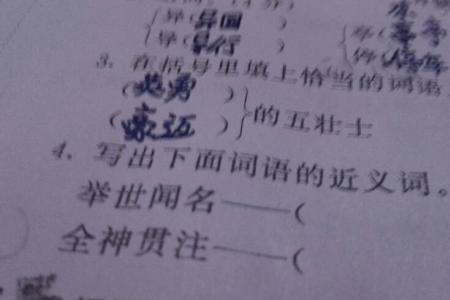 异(异国)
导(导行)
3. 在括号里填上恰当的词语
(英勇)
(豪迈)}的五壮士
4. 写出下面词语的近义词。
举世闻名——(
全神贯注——(